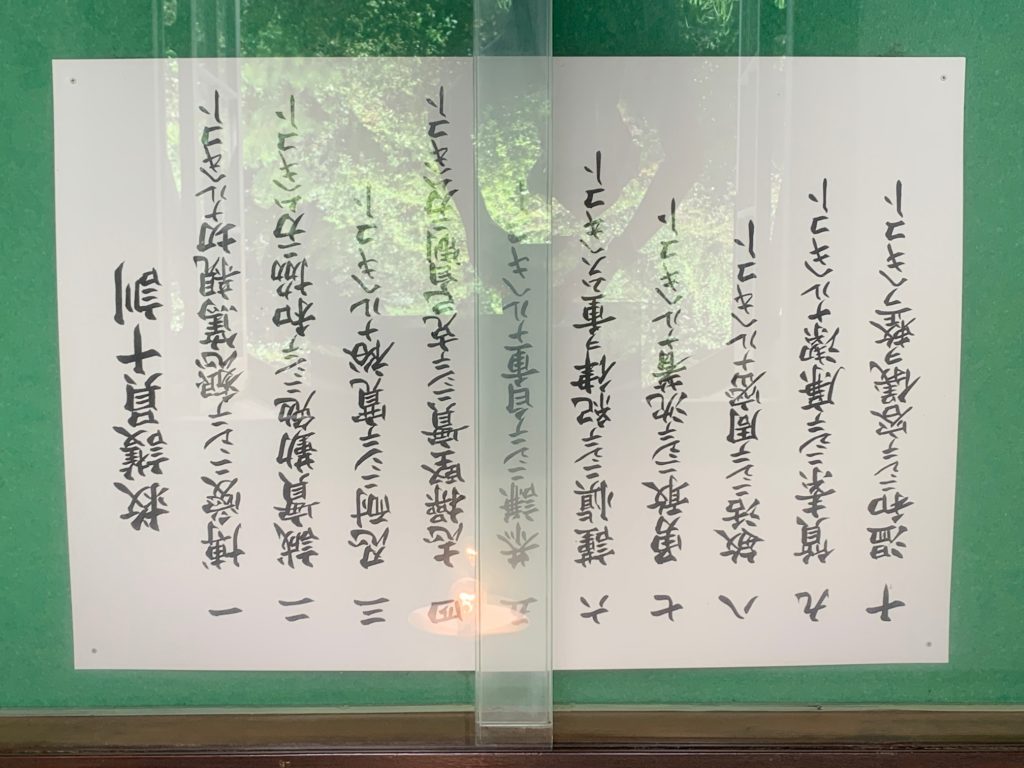 救護員十訓
一 博愛ニシテ懇篤親切ナルヘキコト
二 誠實勤勉ニシテ和協ニカムヘキコト
三 忍耐ニシテ寛裕ナルヘキコト
四 志操堅實ニシテ克己自制ニ力ムヘキコト
五 恭謙ニシテ自重ナルヘキコト
六 謹愼ニシテ紀律ヲ重ムスヘキコト
七 勇敢ニシテ沈著ナルヘキコト
八 敏活ニシテ周密ナルヘキコト
九 質素ニシテ廉潔ナルヘキコト
十 温和ニシテ容儀ヲ整フヘキコト